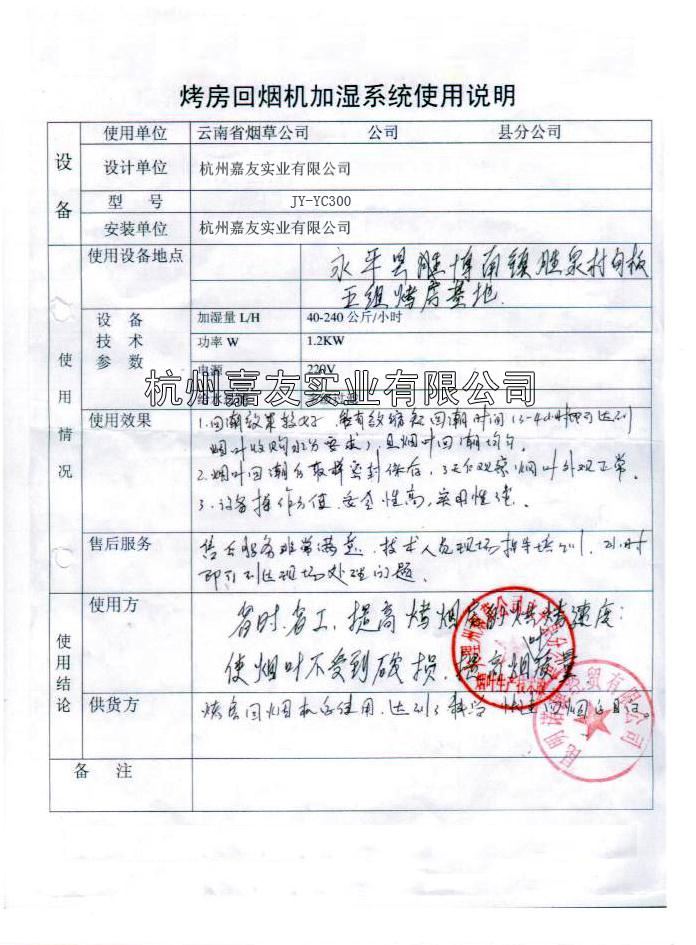 烤房回烟机加湿系统使用说明
设备
使用单位 云南省烟草公司 公司 县分公司
设计单位 杭州嘉友实业有限公司
型 号 JY-YC300
安装单位 杭州嘉友实业有限公司
使用情况
使用设备地点 永平县 博南镇胜泉村
五组烤房基地.
设备技术参数
加湿量 L/H 40-240 公斤/小时
功率 W 1.2KW
电源 220V
杭州嘉友实业有限公司
使用效果 1.回潮效果较好 能有效缩短回潮时间 小时即可达到
烟叶收购水分要求, 且烟叶回潮均匀.
2.烟叶回潮后取样密封保存, 3天后观察烟叶外观正常.
3.设备操作 安全性高,实用性 .
售后服务 售后服务非常满意.技术人员现场指导培训, 小时
即可到达现场处理问题.
使用结论
使用方 省时.省工,提高烤烟房 烘烤速度;
使烟叶不受到破损,提高烟叶质量
供货方 烤房回烟机 使用,达到了 回烟 目的。
烟叶生产技术
贸有限公司
备 注